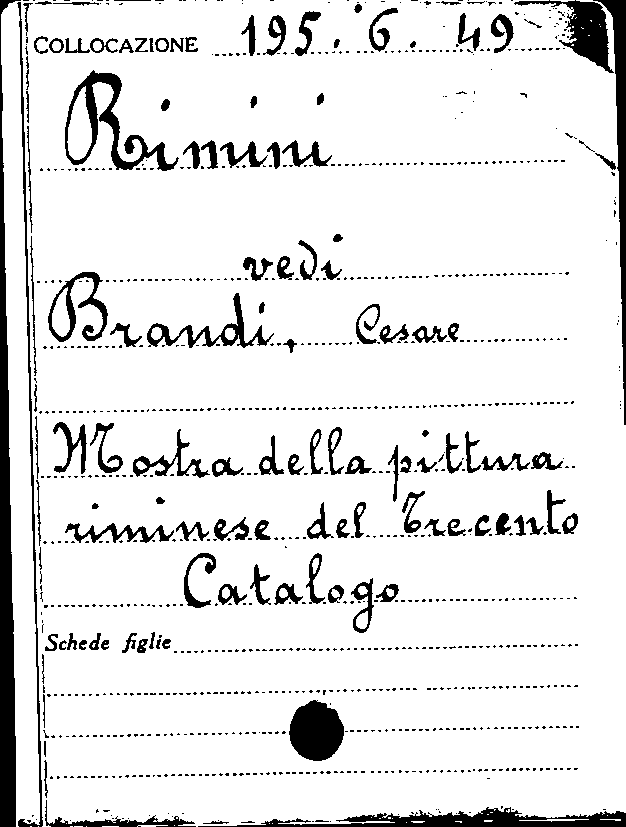 COLLOCAZIONE 195.6.49
Rimini
vedi
Brandi, Cesare
Mostra della pittura
riminese del Trecento
Catalogo
Schede figlie